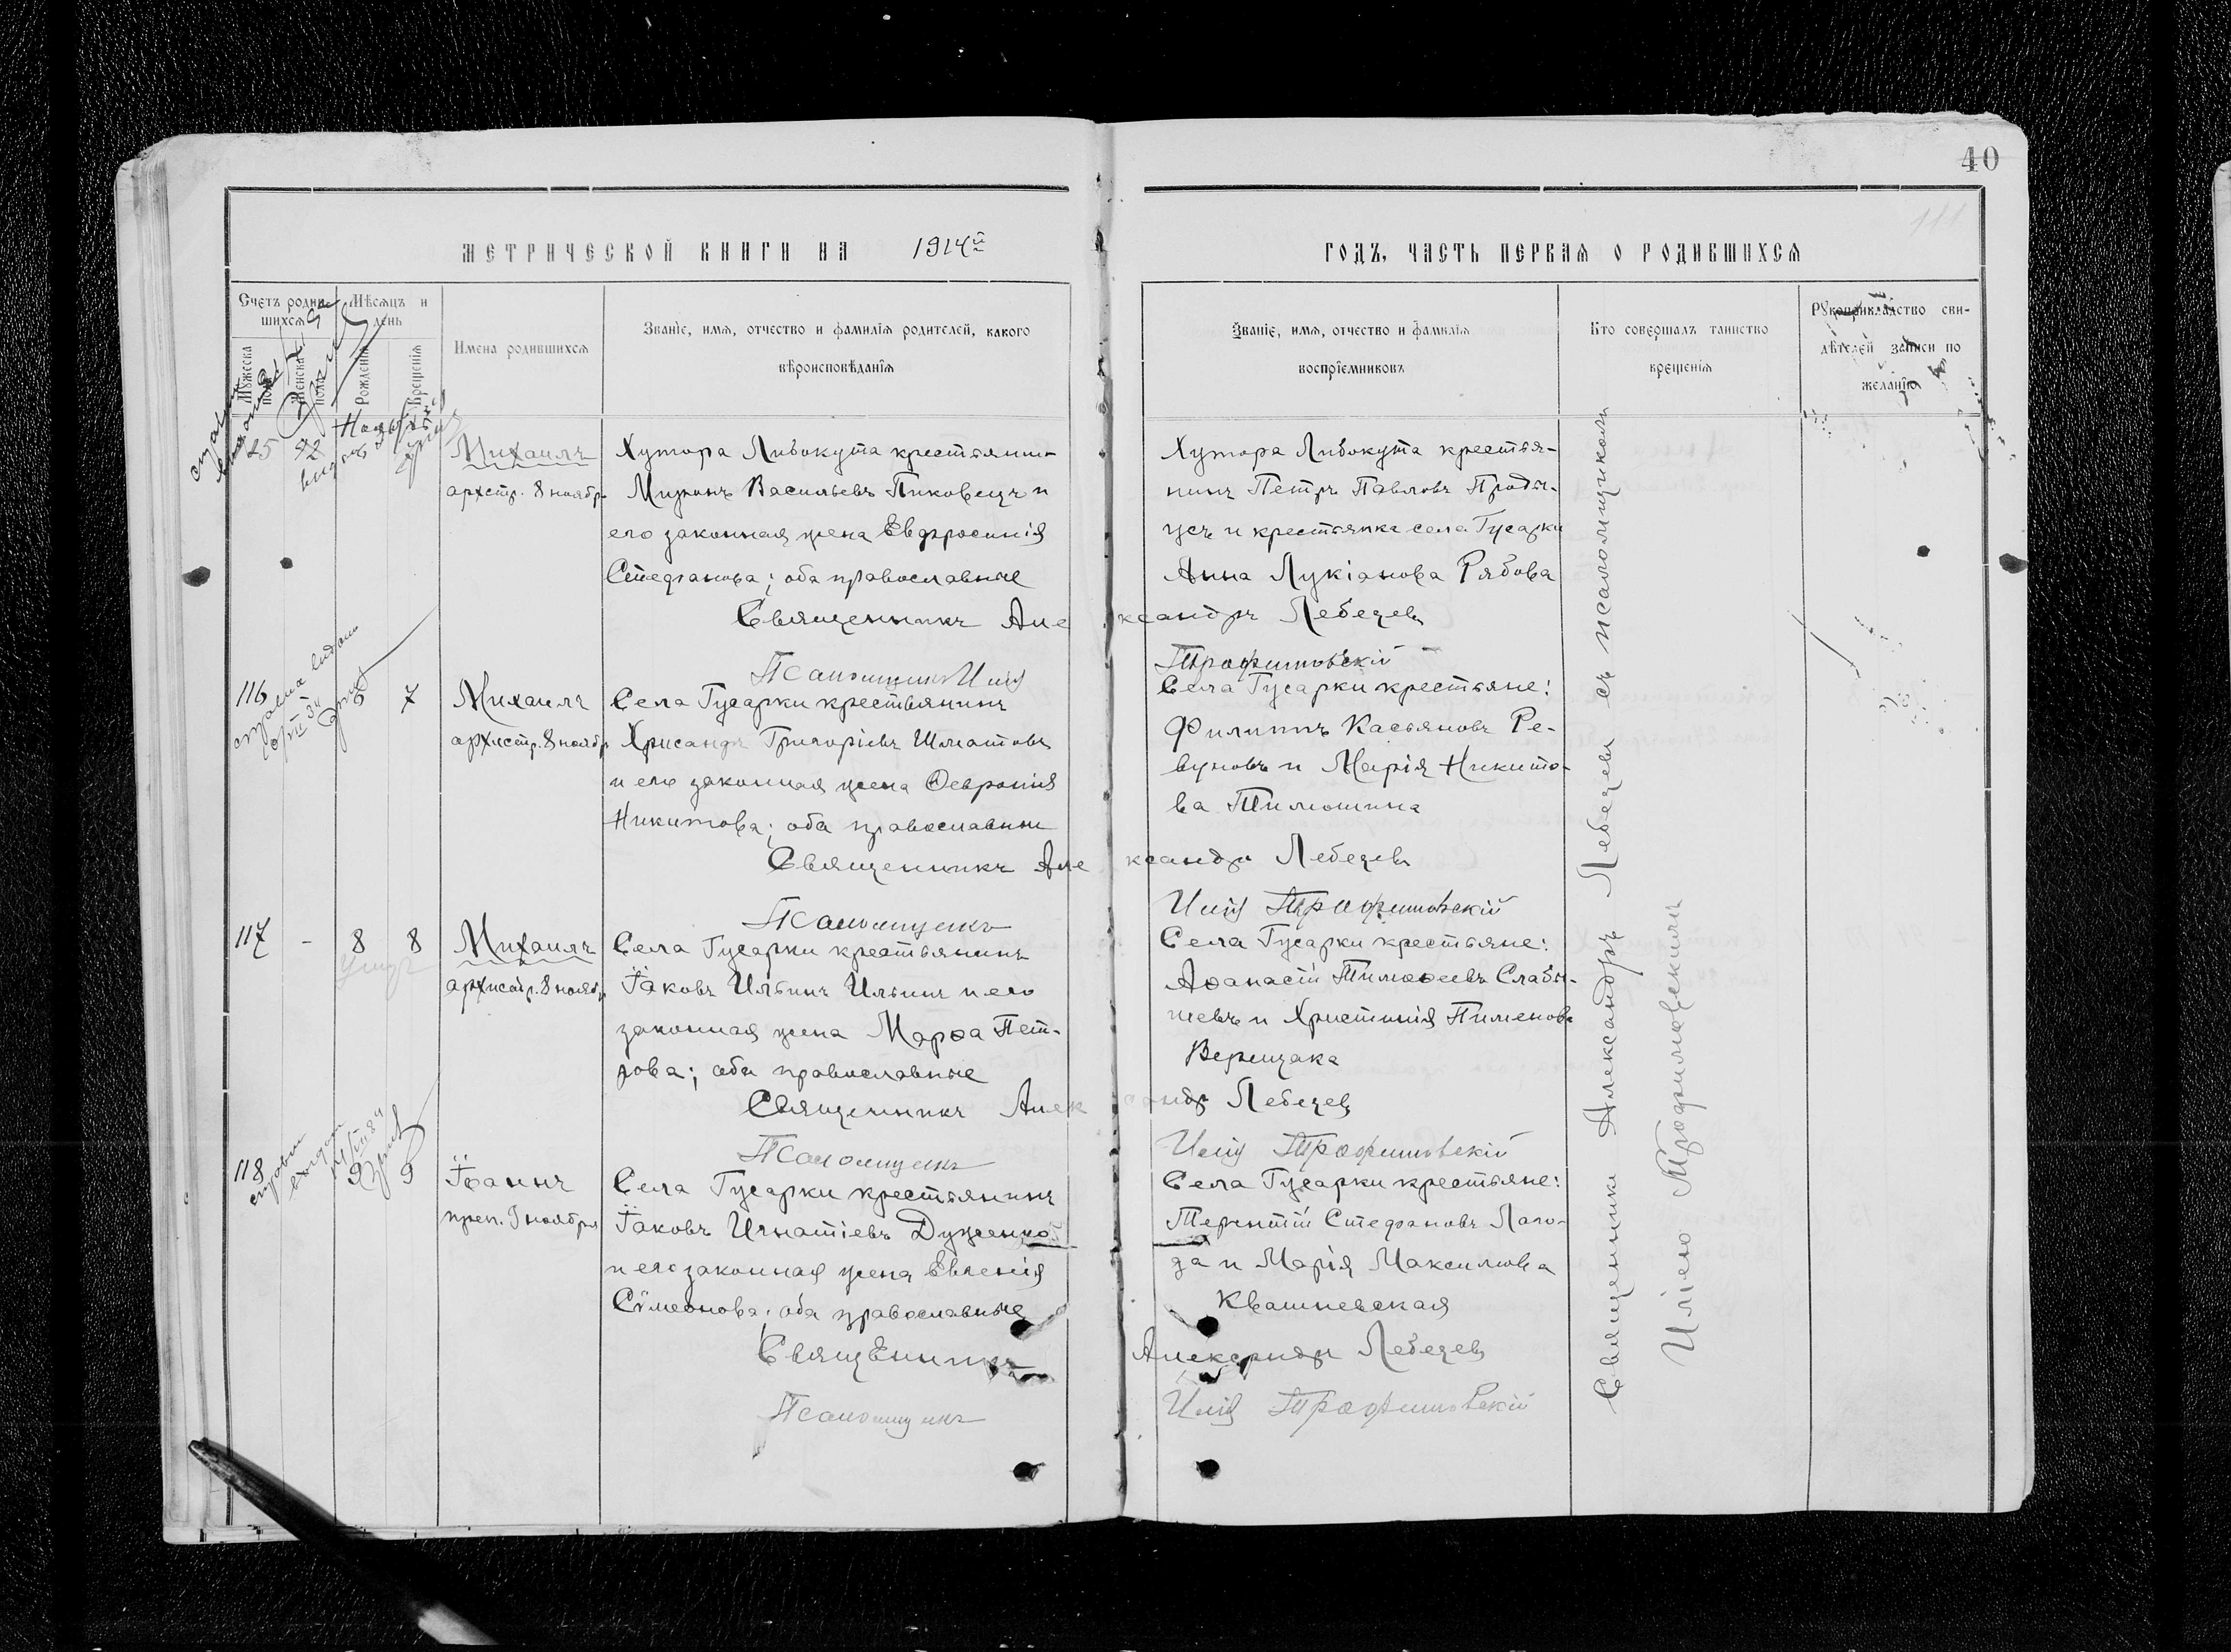 40
111
МЕТРИЧЕСКОЙ КНИГИ НА 1914й
ГОДЪ, ЧАСТЬ ПЕРВАЯ О РОДИВШИХСЯ
Счетъ родив-
шихся
Мѣсяцъ и
день
Мужеска
пола
Женска
пола
Рожденія
Крещенія
Имена родившихся
Званіе, имя, отчество и фамилія родителей, какого
вѣроисповѣданія
Званіе, имя, отчество и фамилія
воспріемниковъ
Кто совершалъ таинство
крещенія
Рукоприкладство сви-
дѣтелей записи по
желанію
Михаилъ
архстр. 8 ноябр.
Хутора Либокута крестьянин-
Миронъ Васильевъ Пиковецъ и
его законная жена Евфросинія
Стефанова; оба православные
Хутора Либокута крестья-
нинъ Петръ Павловъ Проды-
усъ и крестьянка села Гусарки
Анна Лукіанова Рябова
Священникъ Александръ Лебедевъ
Псаломщикъ Илія Трофимовскій
116
6 7
Михаилъ
архистр. 8 ноябр
Села Гусарки крестьянинъ
Хрисанфъ Григоріевъ Шматовъ
и его законная жена Февронія
Никитова; оба православны
Села Гусарки крестьяне:
Филиппъ Касьяновъ Ре-
вуновъ и Марія Никито-
ва Тимошина
Священникъ Александръ Лебедевъ
Псаломщикъ Илія Трофимовскій
117 - 8 8
Михаилъ
архистр. 8 ноябр
Села Гусарки крестьянинъ
Іаковъ Ильинъ Ильинъ и его
законная жена Марѳа Пет-
рова; оба православные
Села Гусарки крестьяне:
Аѳанасій Тимоѳеевъ Слабы-
шевъ и Христинія Пименова
Верещака
Священникъ Александръ Лебедевъ
Псаломщикъ Илія Трофимовскій
118
9 9
Іоаннъ
преп. 9 ноября
Села Гусарки крестьянинъ
Іаковъ Игнатіевъ Дуженко
и его законная жена Евгенія
Сімеонова; оба православные
Села Гусарки крестьяне:
Терентій Стефановъ Лаго-
да и Марія Максимова
Квашневская
Священникъ Александръ Лебедевъ
Псаломщикъ Илія Трофимовскій
Священникъ Александръ Лебедевъ съ псаломщикомъ
Иліею Трофимовскимъ